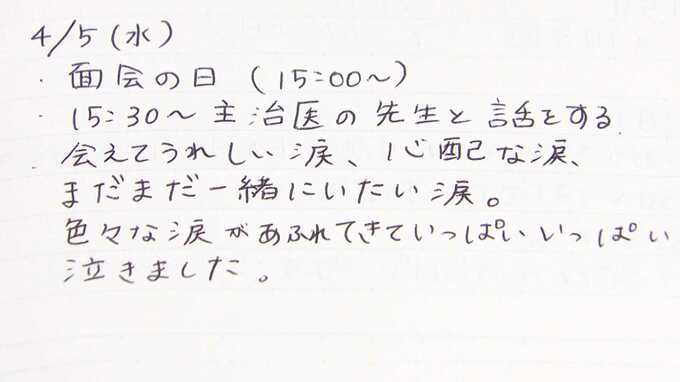 4/5(水)
・面会の日 (15:00〜)
・15:30〜主治医の先生と話をする
会えてうれしい涙、心配な涙、
まだまだ一緒にいたい涙。
色々な涙があふれてきていっぱいいっぱい
泣きました。